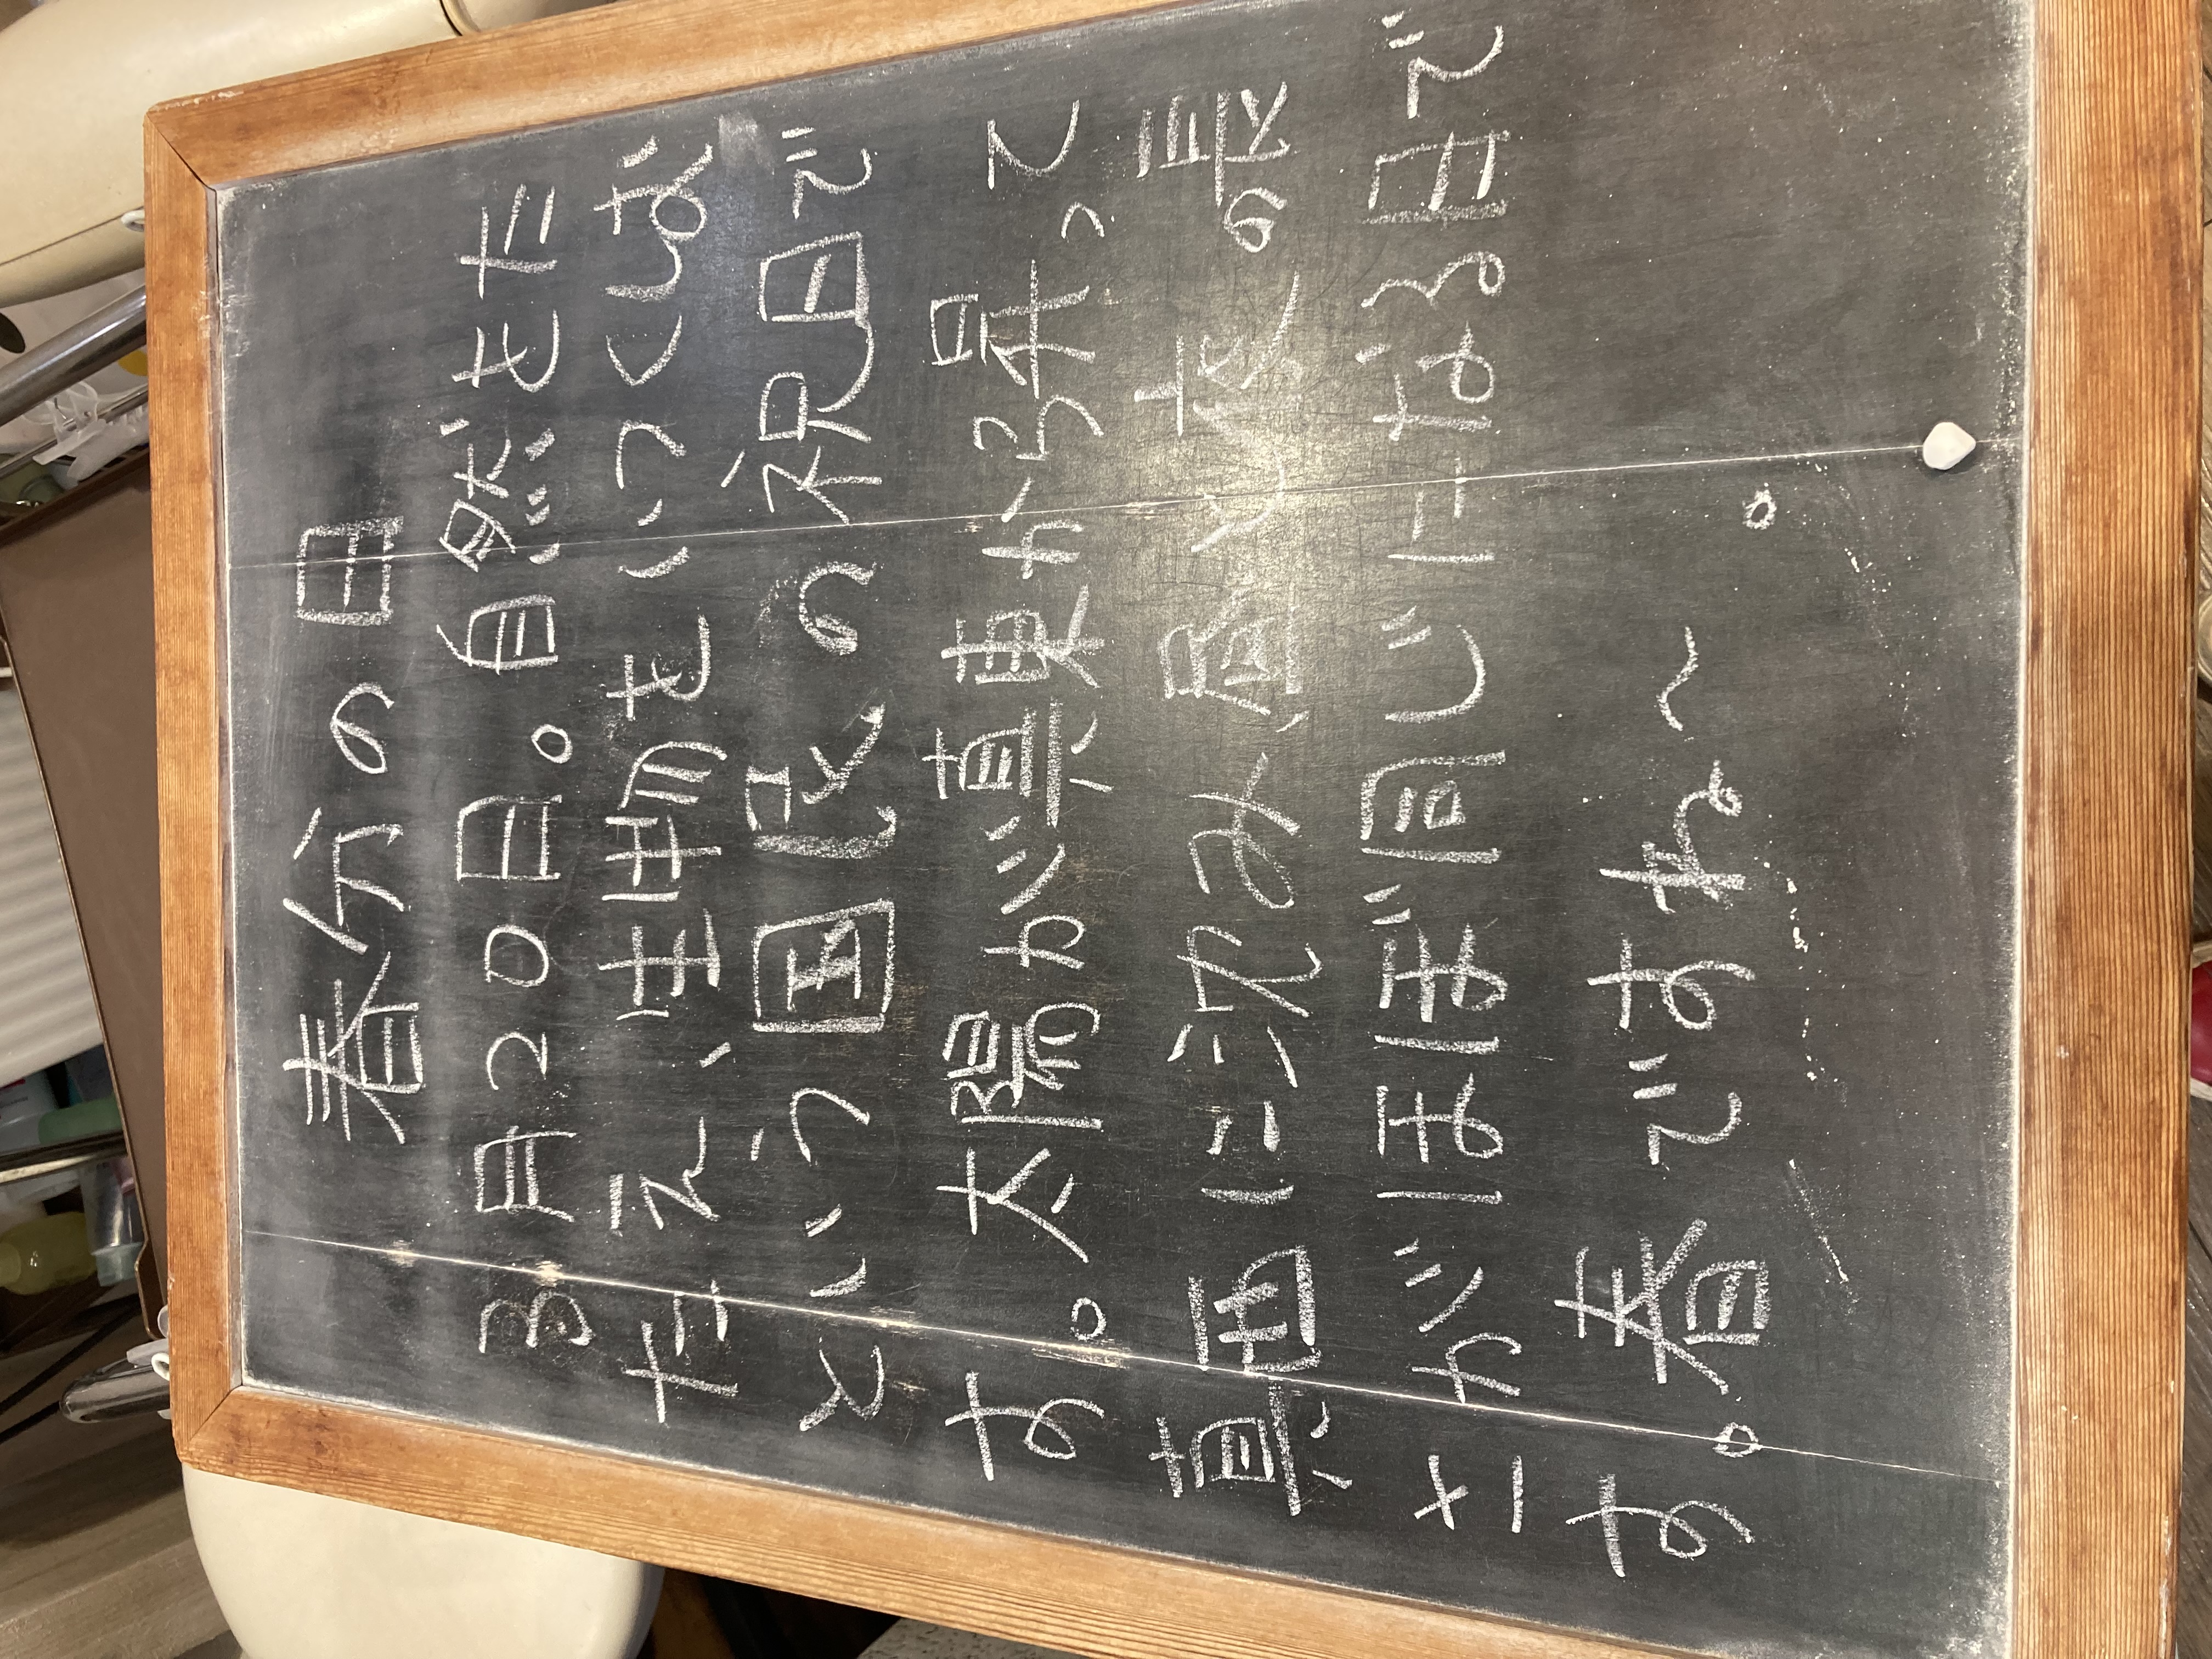 春分の日
3月20日。自然をた
たえ、生物をいつくしむ
という国民の祝日で
す。太陽が真東から昇って
真西に沈み、昼と夜の長
さがほぼ同じになる日で
す。春ですね〜。